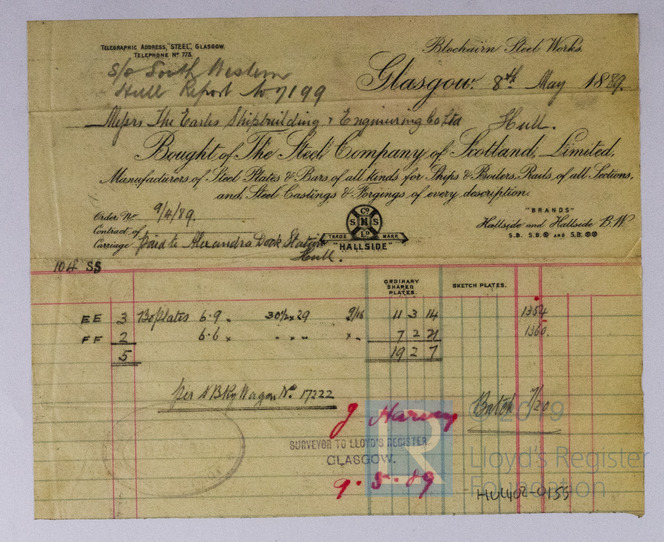 TELEGRAPHIC ADDRESS, "STEEL", GLASGOW.
TELEPHONE No 773.
Blochairn Steel Works.
S/o South Western
Hull Report No 7199
Glasgow. 8th May 1889.
Messrs The Earles Shipbuilding & Engineering Co Ltd Hull.
Bought of The Steel Company of Scotland, Limited,
Manufacturers of Steel Plates & Bars of all kinds for Ships & Boilers, Rails, of all Sections,
and Steel Castings & Forgings of every description.
Order No 9/4/89.
Contract of
Carriage Paid to Alexandra Dock Station
Hull.
Co
S H S
LD
TRADE MARK
"HALLSIDE"
"BRANDS"
Hallside and Hallside B.W.
S.B. S.B. AND S.B.
104 SS
ORDINARY SHAPED PLATES.
SKETCH PLATES.
EE 3 Bo Plates 6.9 29 9/16 11 3 14 1354
FF 2 6.6 7 2 21 1360.
5 19 2 7
per N B Ry Wagon No. 17222
Batch 7/20
J Harvey
SURVEYOR TO LLOYD'S REGISTER
GLASGOW.
9-5-89
2019
Lloyd's Register
Foundation
HUL402-0155